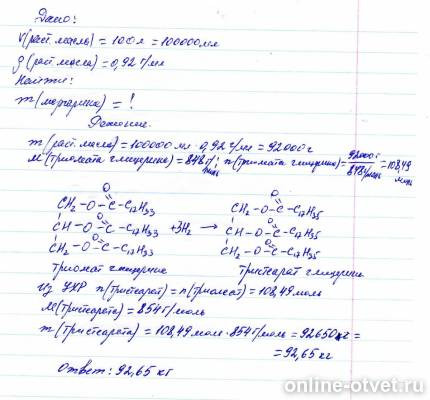 Дано:
V(раст. масла) = 100л = 100000мл
ρ(раст. масла) = 0,92 г/мл
Найти:
m(маргарина) = ?
Решение.
m(раст. масла) = 100000 мл · 0,92 г/мл = 92000 г
M(триолеата глицерина) = 848 г/моль; n(триолеата глицерина) = 92000г / 848г/моль = 108,49 моль
CH2 – O – C(=O) – C17H33 CH2 – O – C(=O) – C17H35
CH – O – C(=O) – C17H33 +3H2 → CH – O – C(=O) – C17H35
CH2 – O – C(=O) – C17H33 CH2 – O – C(=O) – C17H35
триолеат глицерина тристеарат глицерина
Из УХР n(тристеарат) = n(триолеат) = 108,49 моль
M(тристеарата) = 854 г/моль
m(тристеарата) = 108,49 моль · 854 г/моль = 92650 г =
= 92,65 кг
Ответ: 92,65 кг
online-otvet.ru